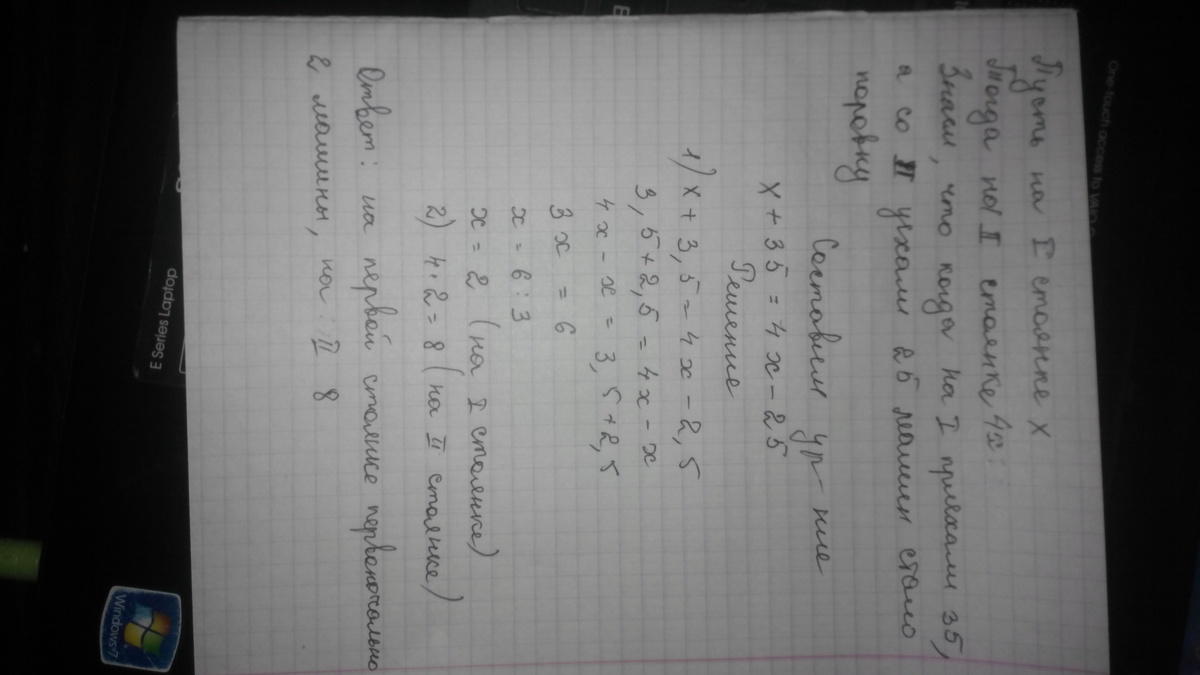 Пусть на I стоянке x
Тогда на II стоянке 4x:
Знаем, что когда на I приехали 35,
а со II уехали 25 машин стало
поровну
Составим ур-ние
x + 35 = 4x - 25
Решение
1) x + 3,5 = 4x - 2,5
3,5 + 2,5 = 4x - x
4x - x = 3,5 + 2,5
3x = 6
x = 6 : 3
x = 2 (на I стоянке)
2) 4·2 = 8 (на II стоянке)
Ответ: на первой стоянке первоночально
2 машины, на : II 8
One-touch access to
E Series Laptop
Windows 7